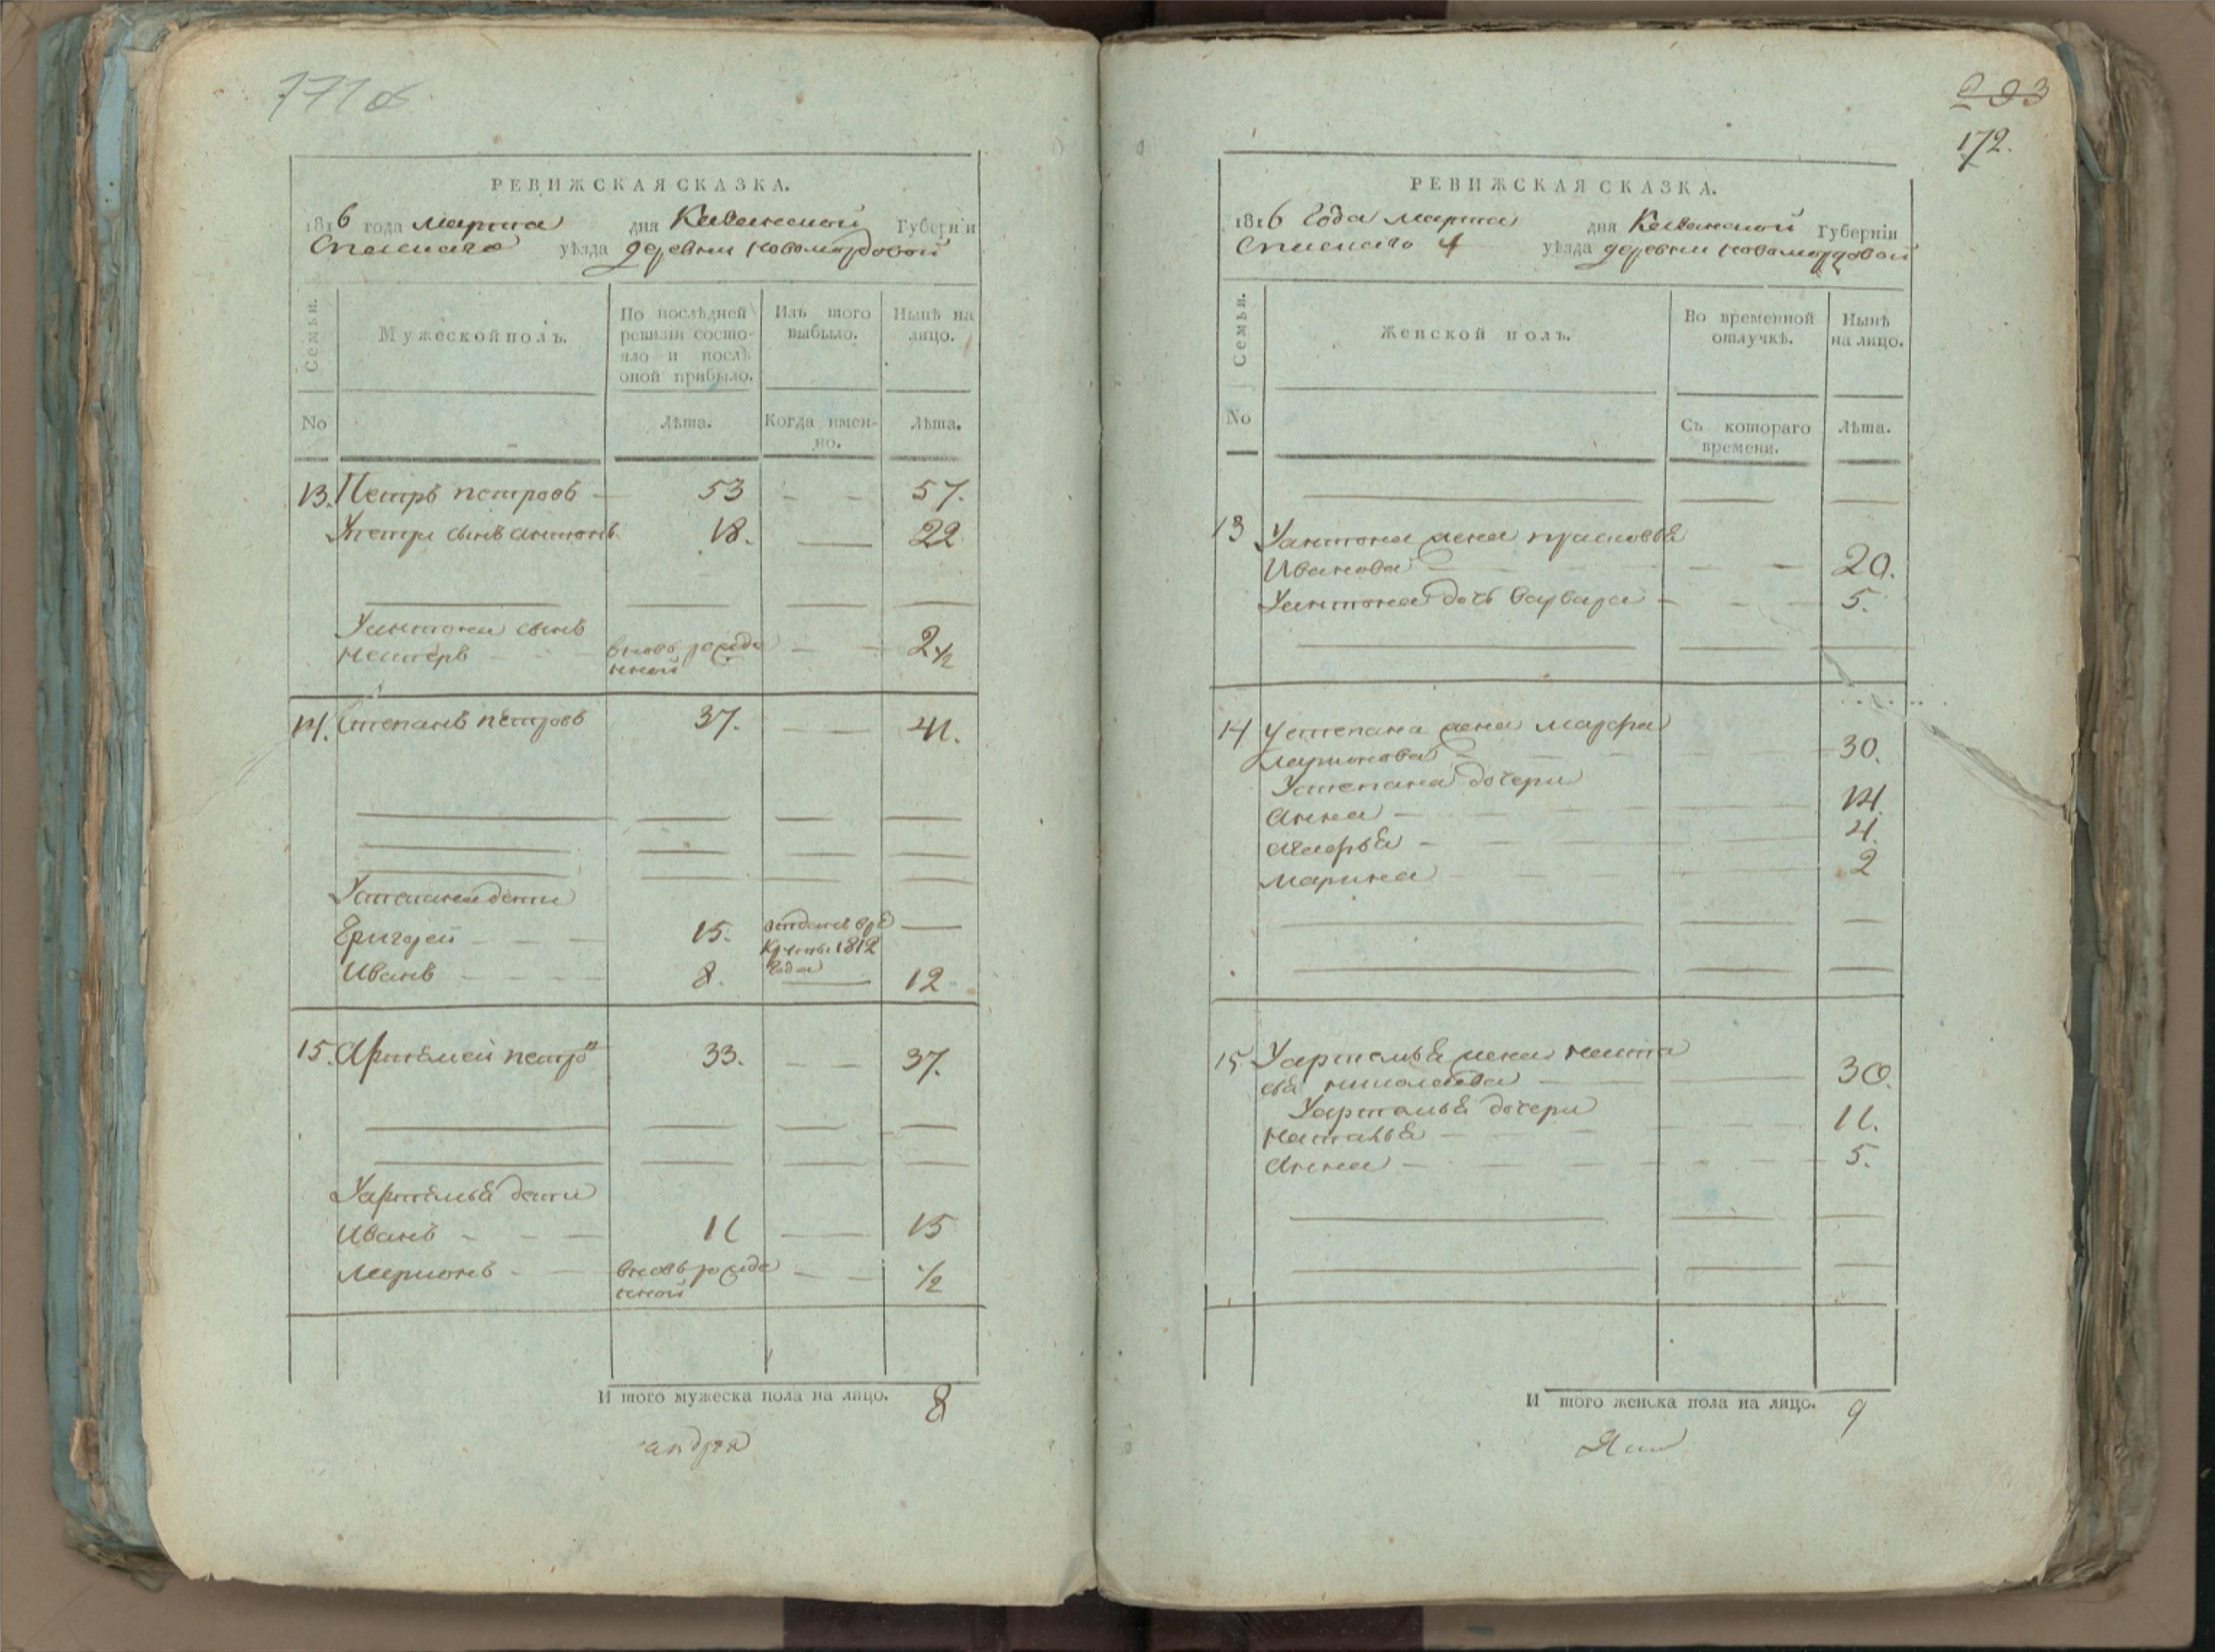 РЕВИЖСКАЯ СКАЗКА.
1816 года марта дня Казанской Губерніи
Спаскаго уѣзда деревни новомордовой
Семьи.
Мужеской полъ.
По послѣдней ревизіи состояло и послѣ оной прибыло.
Изъ того выбыло.
Нынѣ на лицо.
No
Лѣта.
Когда именно.
Лѣта.
13. Петръ петровъ 53 57.
Упетра сынъ антонъ 18. 22
Уантона сынъ
вновь рожде
нной 2 1/2
14. Степанъ петровъ 37. 41.
Устепана дети
Григорей 15. отданъ в ре
круты 1812
года
Иванъ 8. 12
15. Артемей петро 33. 37.
Уартемья дети
Иванъ 11 15
Ларионъ вновь рожде
нной 1/2
И того мужеска пола на лицо. 8
андрея
172.
РЕВИЖСКАЯ СКАЗКА.
1816 года марта дня Казанской Губерніи
Спаскаго уѣзда деревни новомордовой
Семьи.
Женской полъ.
Во временной отлучкѣ.
Нынѣ на лицо.
No
Съ котораго времени.
Лѣта.
13 Уантона жена прасковья
Иванова 20.
Уантона дочь варвара 5.
14 Устепана жена марфа
Ларионова 30.
Устепана дочери
Анна 14.
4.
Марина 2
15 Уартемья жена наста
сья николаева 30.
Уартемья дочери
Наталья 11.
Анна 5.
И того женска пола на лицо. 9